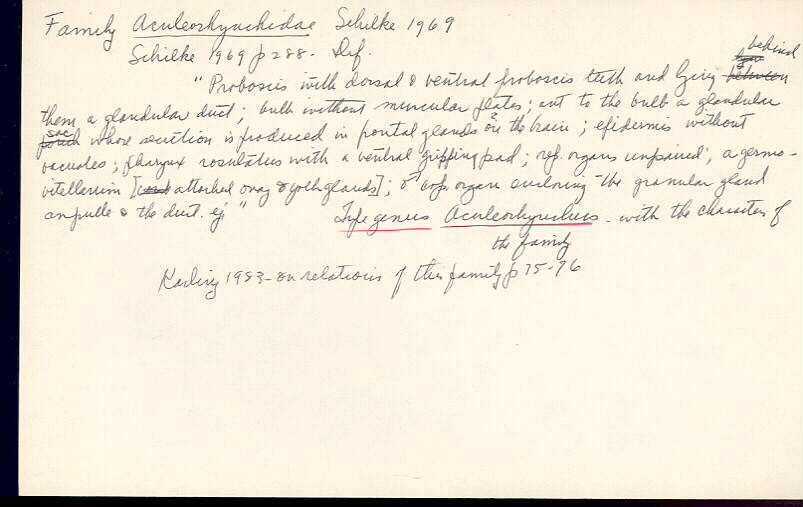 Family Aculeorhynchidae Schilke 1969
Schilke 1969 p 288 - Def.
behind
"Proboscis with dorsal & ventral proboscis teeth and lying between
them a glandular duct; bulb without muscular plates; ant to the bulb a glandular
sac
pouch whose secretion is produced in frontal glands on the brain; epidermis without
vacuoles; pharynx rosulatus with a ventral gripping pad; rep. organs unpaired; a germo-
vitellarium [attached ovary & yolk glands]; ♂ cop. organ enclosing the granular gland
ampulle & the duct. ej "
Type genus Aculeorhynchus - with the characters of
the family
Karling 1983 - on relations of this family p 75-76